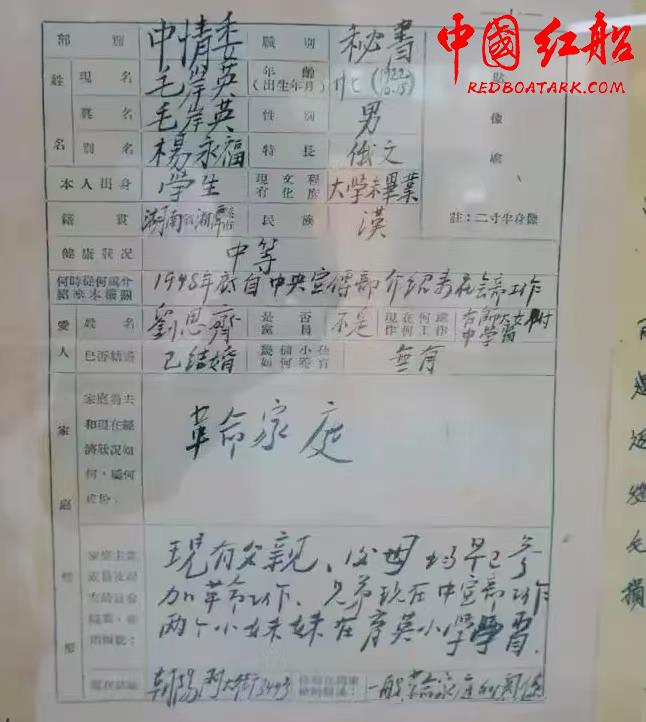 中國红船
REDBOATARK.COM
部別 中情委 職別 秘書
姓名 現名 毛岸英 年齡(出生年月) 廿七(1922.10.15) 貼像處
原名 毛岸英 性別 男
別名 楊永福 特長 俄文
本人出身 學生 現有文化程度 大學未畢業
籍貫 湖南省湘潭 民族 漢 註:二寸半身像
健康狀況 中等
何時從何處介紹來本機關 1948年底自中央宣傳部介紹來在會工作
愛人 姓名 劉思齊 是否黨員 不是 現在何處作何工作 師大女附中學習
已否結婚 已結婚 幾個小孩如何養育 無有
家庭情形
家庭過去和現在經濟狀況如何,屬何成份: 革命家庭
現有父親、父母均早已參
加革命工作、兄弟現在中宣部工作
兩个小妹妹在育英小學學習.
現在住址 朝陽門大街 一般革命家庭的關係